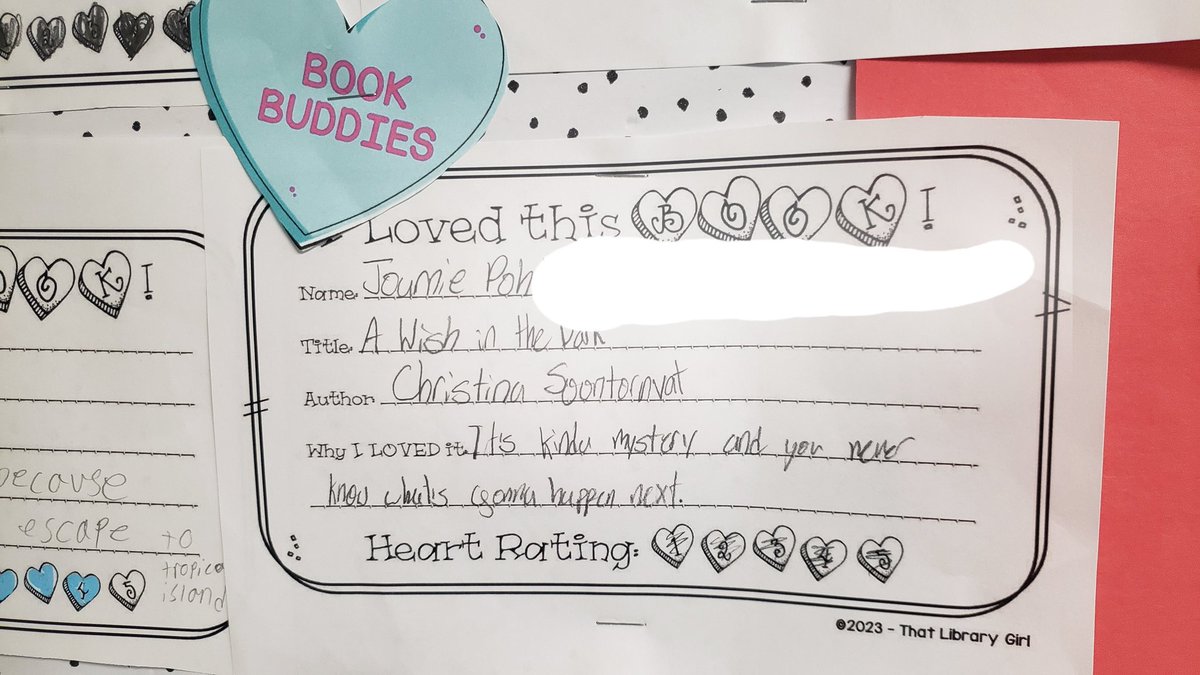 BOOK
BUDDIES
Loved this BOOK!
Name: Joumie Poh
Title: A Wish in the Dark
Author: Christina Soontornvat
Why I LOVED it: It's kinda mystery and you never
know whats gonna happen next.
Heart Rating: 1 2 3 4 5
©2023 - That Library Girl
OK!
because
escape to
tropica
island
4 5